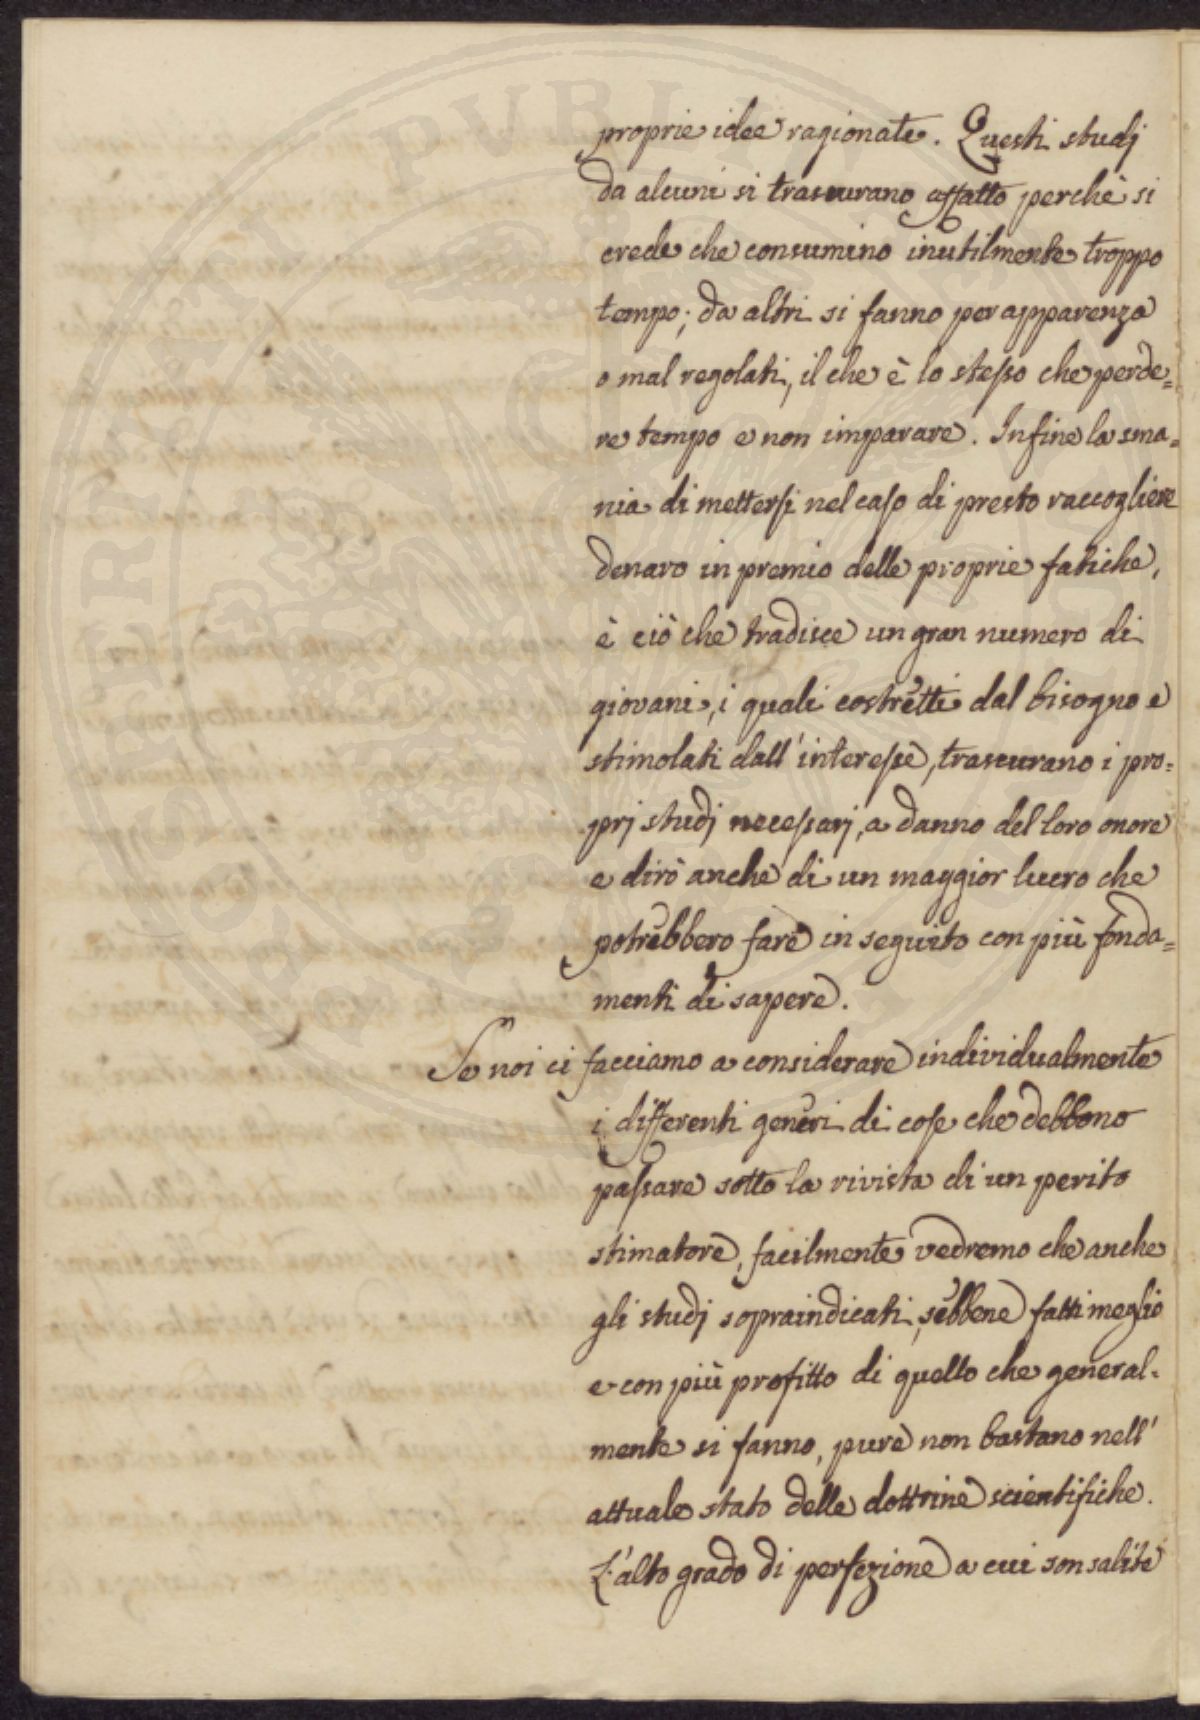 proprie idee ragionate. Questi studj
da alcuni si trascurano affatto perchè si
crede che consumino inutilmente troppo
tempo; da altri si fanno per apparenza
o mal regolati, il che è lo stesso che perde=
re tempo e non imparare. Infine la sma=
nia di mettersi nel caso di presto raccogliere
denaro in premio delle proprie fatiche,
è ciò che tradisce un gran numero di
giovani, i quali costretti dal bisogno e
stimolati dall'interesse, trascurano i pro=
prj studj necessarj, a danno del loro onore
e dirò anche di un maggior lucro che
potrebbero fare in seguito con più fonda=
menti di sapere.
Se noi ci facciamo a considerare individualmente
i differenti generi di cose che debbono
passare sotto la rivista di un perito
stimatore, facilmente vedremo che anche
gli studj sopraindicati, sebbene fatti meglio
e con più profitto di quello che general=
mente si fanno, pure non bastano nell'
attuale stato delle dottrine scientifiche.
L'alto grado di perfezione a cui son salite